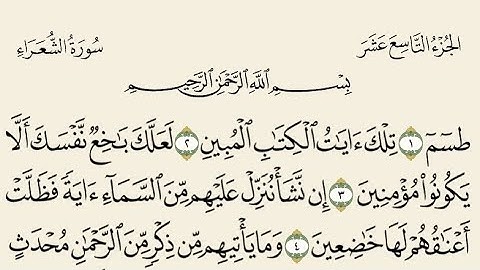 الجزء التاسع عشر
سورة الشعراء
بِسْمِ ٱللَّهِ ٱلرَّحْمَٰنِ ٱلرَّحِيمِ
طسٓمٓ ١ تِلْكَ ءَايَٰتُ ٱلْكِتَٰبِ ٱلْمُبِينِ ٢ لَعَلَّكَ بَٰخِعٌ نَّفْسَكَ أَلَّا
يَكُونُوا۟ مُؤْمِنِينَ ٣ إِن نَّشَأْ نُنَزِّلْ عَلَيْهِم مِّنَ ٱلسَّمَآءِ ءَايَةً فَظَلَّتْ
أَعْنَٰقُهُمْ لَهَا خَٰضِعِينَ ٤ وَمَا يَأْتِيهِم مِّن ذِكْرٍ مِّنَ ٱلرَّحْمَٰنِ مُحْدَثٍ